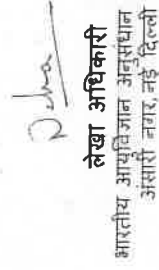 लेखा अधिकारी
भारतीय आयुर्विज्ञान अनुसंधान
अंसारी नगर, नई दिल्ली